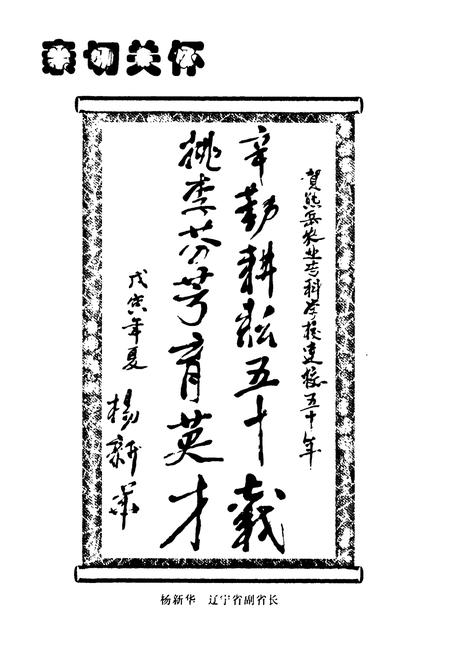 亲切关怀
贺熊岳农业专科学校建校五十年
辛勤耕耘五十载
桃李芬芳育英才
戊寅年夏
杨新华
杨新华 辽宁省副省长